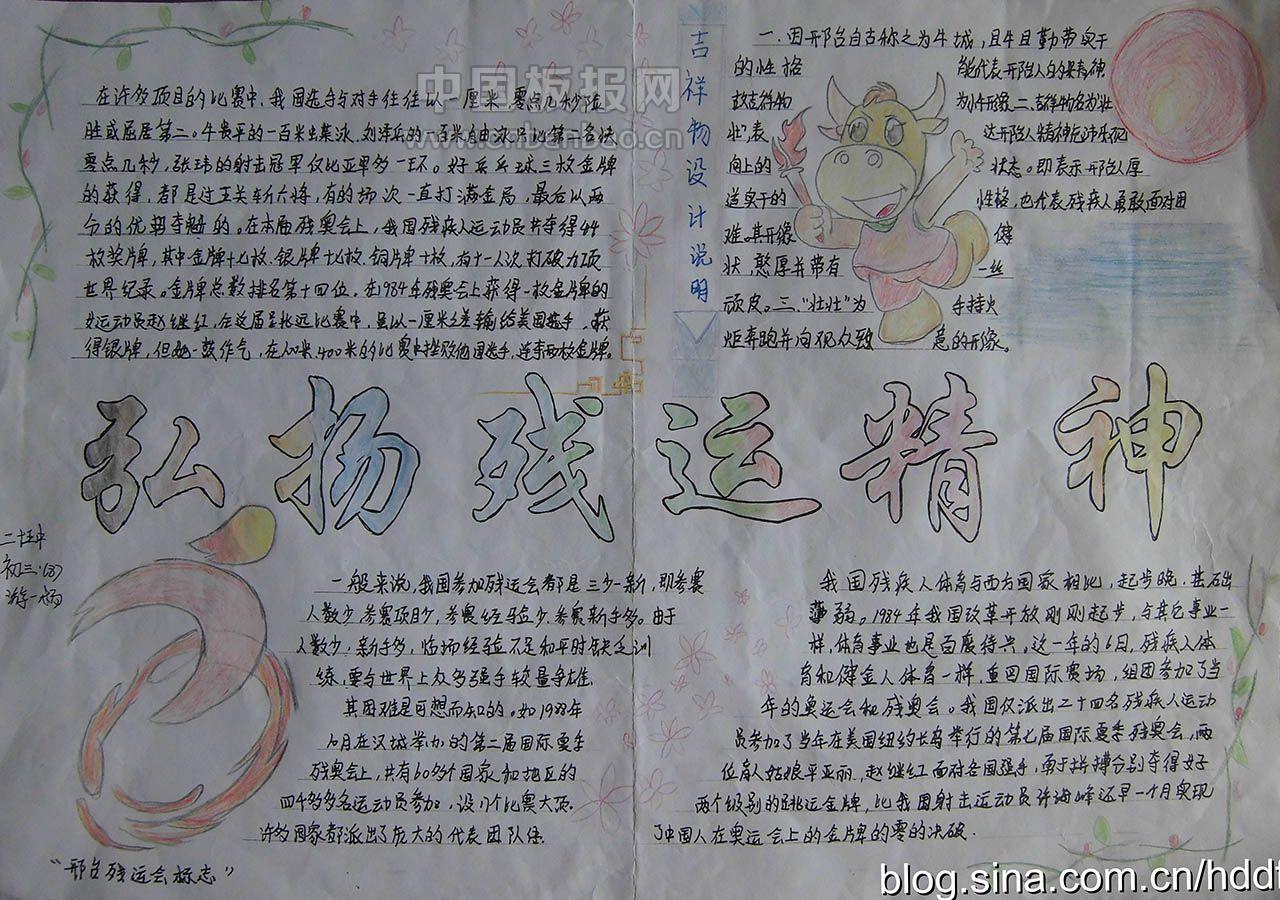 在许多项目的比赛中,我国选手与对手往往以一厘米、零点几秒险
胜或屈居第二。牛贵平的一百米出某泳、刘泽兵的一百米自由泳只比第二名快
零点几秒,张玮的射击冠军仅比亚军多一环。好乒乓球三枚金牌
的获得,都是过五关斩六将,有的场次一直打满金局,最后以两
分的优势夺魁的。在本届残奥会上,我国残疾人运动员共夺得44
枚奖牌,其中金牌十七枚.银牌十七枚.铜牌十枚,有十一人次打破九项
世界纪录。金牌总数排名第十四位。在1984年残奥会上获得一枚金牌的
女运动员赵继红,在这届立跳远比赛中,虽以一厘米之差输给美国选手,获
得银牌,但她一鼓作气,在 米400米的比赛中挫败他国选手,连夺两枚金牌。
吉祥物设计说明
一.因邢台自古称之为牛城,且牛且勤劳实干
的性格 能代表邢台人的 精神
故吉祥物 为小牛形像.二.吉祥物名为"壮
壮",表 达邢台人精神
向上的 状态。即表示邢台人厚
道实干的 性格,也代表残疾人勇敢面对困
难。其形像 健
状,憨厚并带有 一丝
顽皮。三."壮壮"为 手持火
炬奔跑并向观众致 意的形象。
中国板报网
弘扬残运精神
二十五中
初三·(3)
游一杨
"邢台残运会标志"
一般来说,我国参加残运会都是三少一新,即参赛
人数少.参赛项目少,参赛经验少.参赛新手多。由于
人数少.新手多,临场经验不足和平时缺乏训
练,要与世界上众多强手较量争雄.
其困难是可想而知的。如1988年
10月在汉城举办的第二届国际夏季
残奥会上,共有60多个国家和地区的
四千多多名运动员参加,设17个比赛大项.
许多国家都派出了庞大的代表团队伍.
我国残疾人体育与西方国家相比,起步晚,基础
薄弱。1984年我国改革开放刚刚起步,与其它事业一
样,体育事业也是百废待兴。这一年的6月,残疾人体
育和健全人体育一样,重回国际赛场,组团参加了当
年的奥运会和残奥会。我国仅派出二十四名残疾人运动
员参加了当年在美国纽约长岛举行的第七届国际夏季残奥会,两
位盲人姑娘平亚丽.赵继红面对各国强手,勇于拼搏分别夺得好
两个级别的跳远金牌,比我国射击运动员许海峰还早一个月实现
了中国人在奥运会上的金牌的零的决破.
blog.sina.com.cn/hddf